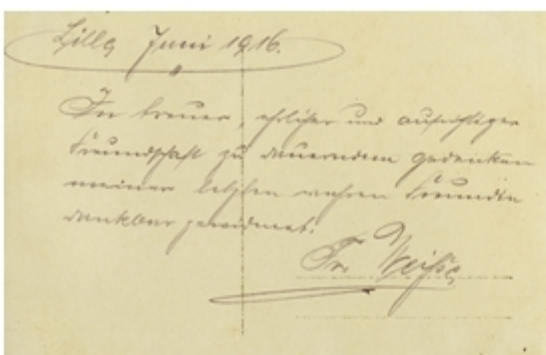 Lille Juni 1916.
In treuer, ehrlicher und aufrichtiger
Freundschaft zu dauerndem gedenken
meiner letzten wahren Freundin
dankbar gewidmet.
Fr. Weiße